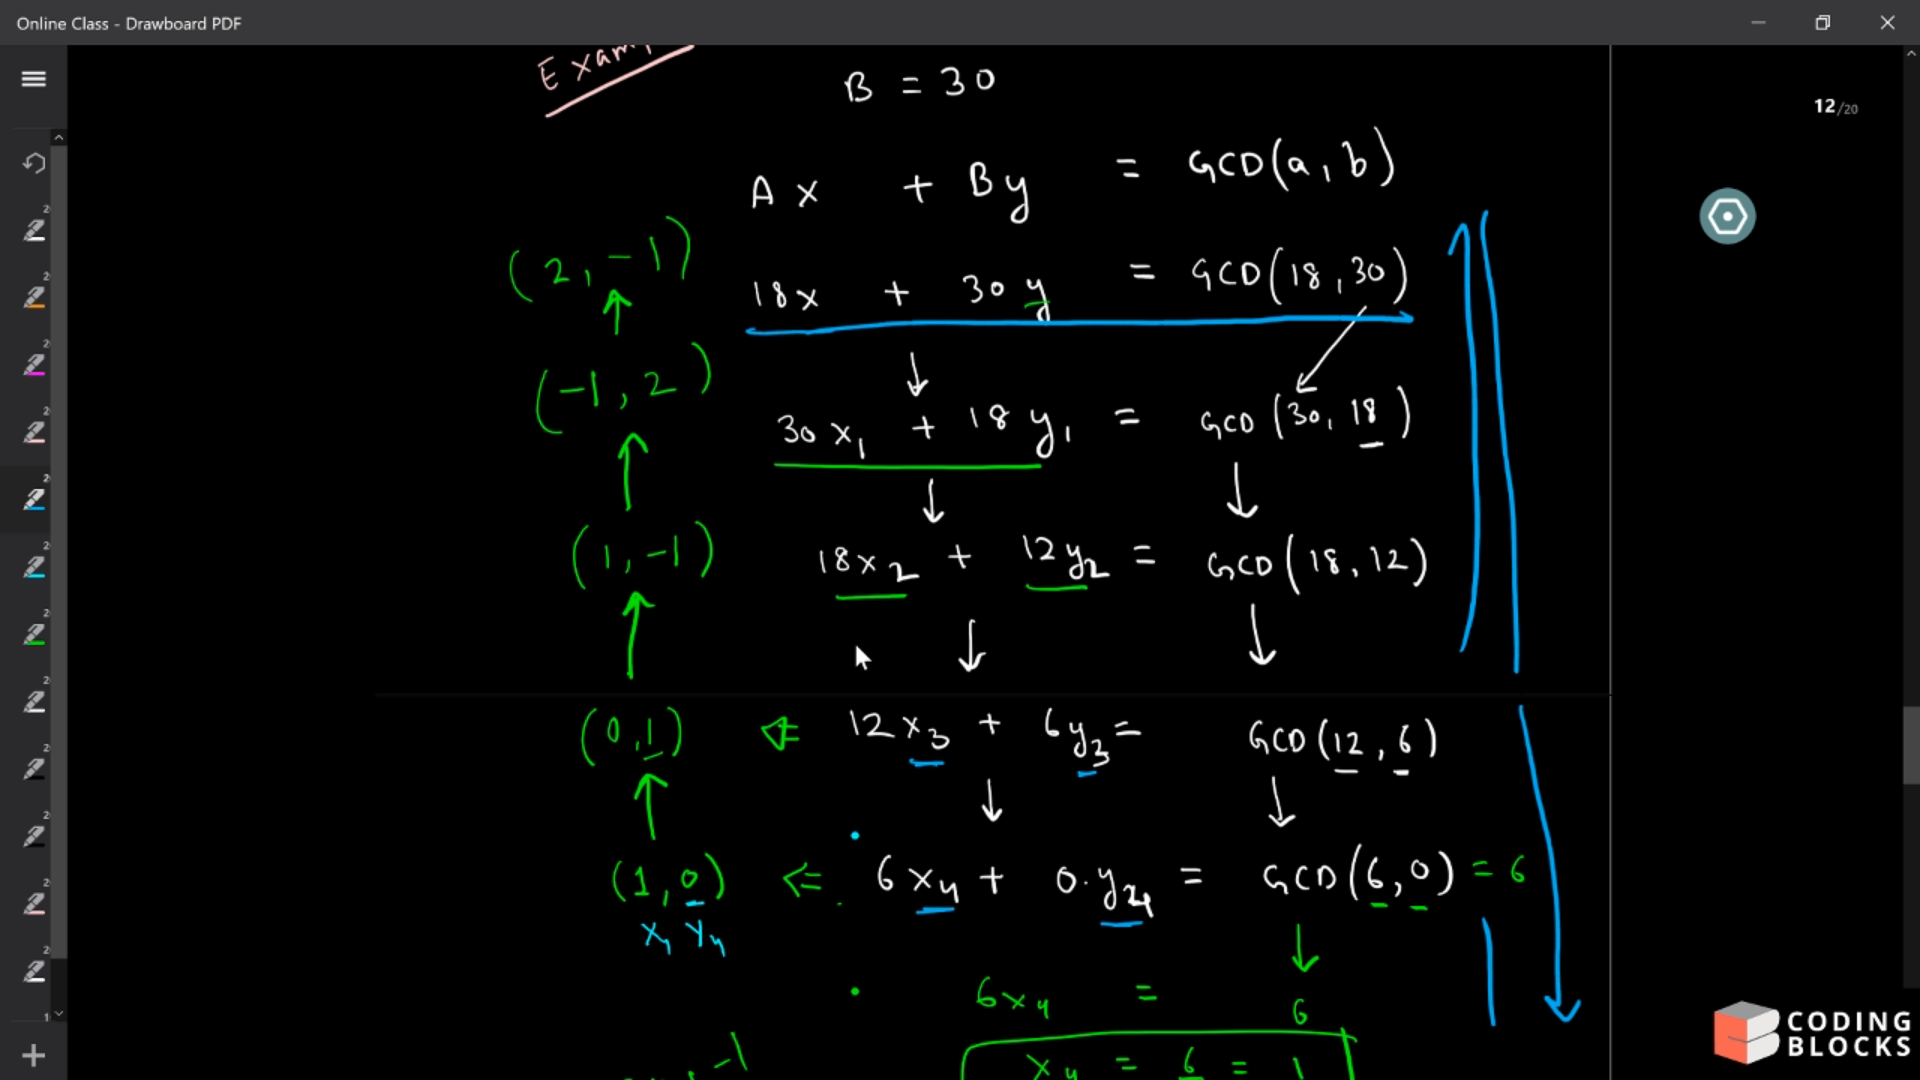 Online Class - Drawboard PDF
Exam
B = 30
12/20
Ax + By = GCD(a, b)
(2, -1)
18x + 30y = GCD(18, 30)
(-1, 2)
30x₁ + 18y₁ = GCD(30, 18)
(1, -1)
18x₂ + 12y₂ = GCD(18, 12)
(0, 1) ⇐ 12x₃ + 6y₃ = GCD(12, 6)
(1, 0) ⇐ 6x₄ + 0.y₄ = GCD(6, 0) = 6
x₄ y₄
6x₄ = 6
x₄ = 6 = 1
-1
CODING
BLOCKS